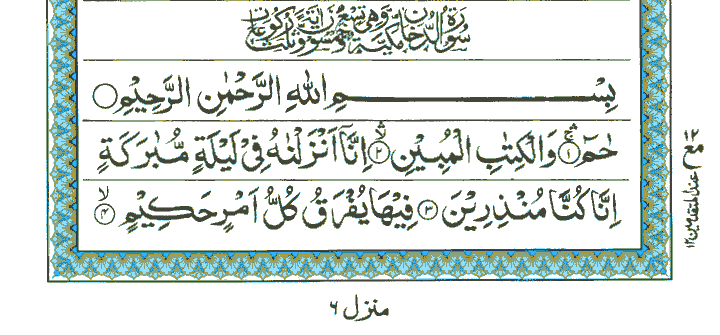 سُوْرَةُ الدُّخَانِ مَكِّيَّةٌ وَّهِيَ تِسْعٌ وَّخَمْسُوْنَ اٰيَةً وَّثَلٰثُ رُكُوْعَاتٍ
بِسْمِ اللّٰهِ الرَّحْمٰنِ الرَّحِيْمِ
حٰمٓ ۚۛ ﴿۱﴾ وَالْكِتٰبِ الْمُبِيْنِ ۙۛ ﴿۲﴾ اِنَّاۤ اَنْزَلْنٰهُ فِيْ لَيْلَةٍ مُّبٰرَكَةٍ
اِنَّا كُنَّا مُنْذِرِيْنَ ﴿۳﴾ فِيْهَا يُفْرَقُ كُلُّ اَمْرٍ حَكِيْمٍ ۙ ﴿۴﴾
مع ۱۲
عند المتقدمين ۱۲
منزل ۶